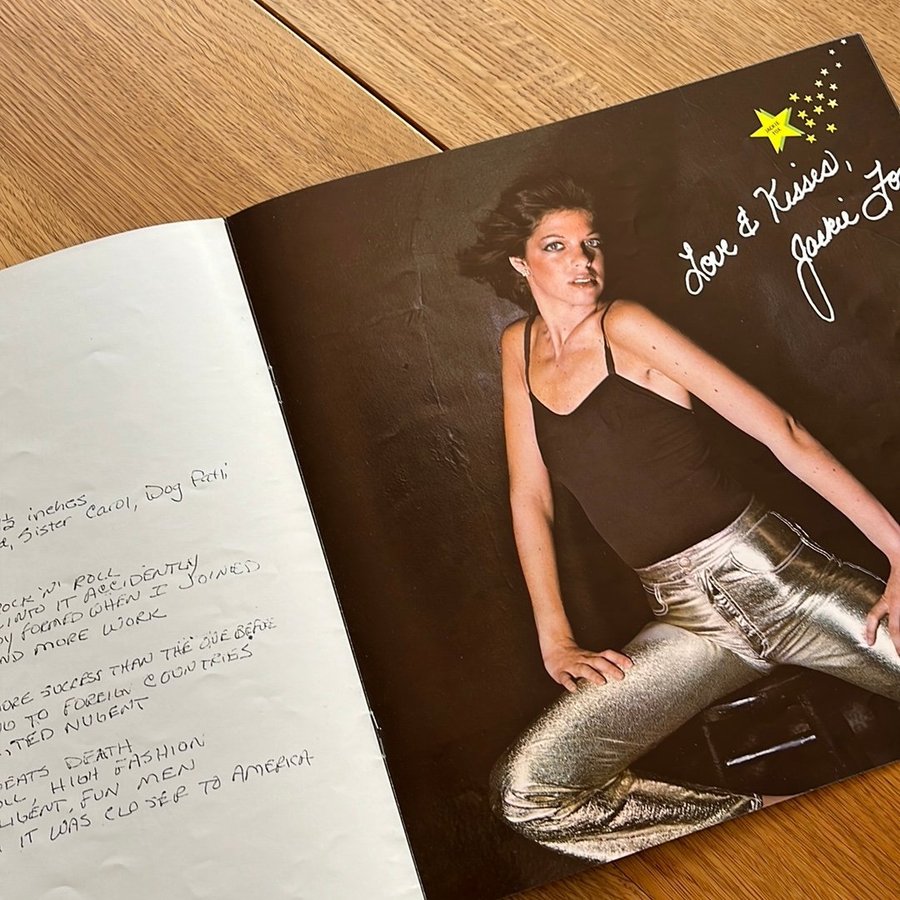 ½ inches
, Sister Carol, Dog Patti
ROCK 'N' ROLL
INTO IT ACCIDENTLY
FORMED WHEN I JOINED
AND MORE WORK
MORE SUCCESS THAN THE ONE BEFORE
TO FOREIGN COUNTRIES
TED NUGENT
BEATS DEATH
, HIGH FASHION
LIGENT, FUN MEN
IT WAS CLOSER TO AMERICA
JACKIE
FOX
Love & Kisses,
Jackie Fo